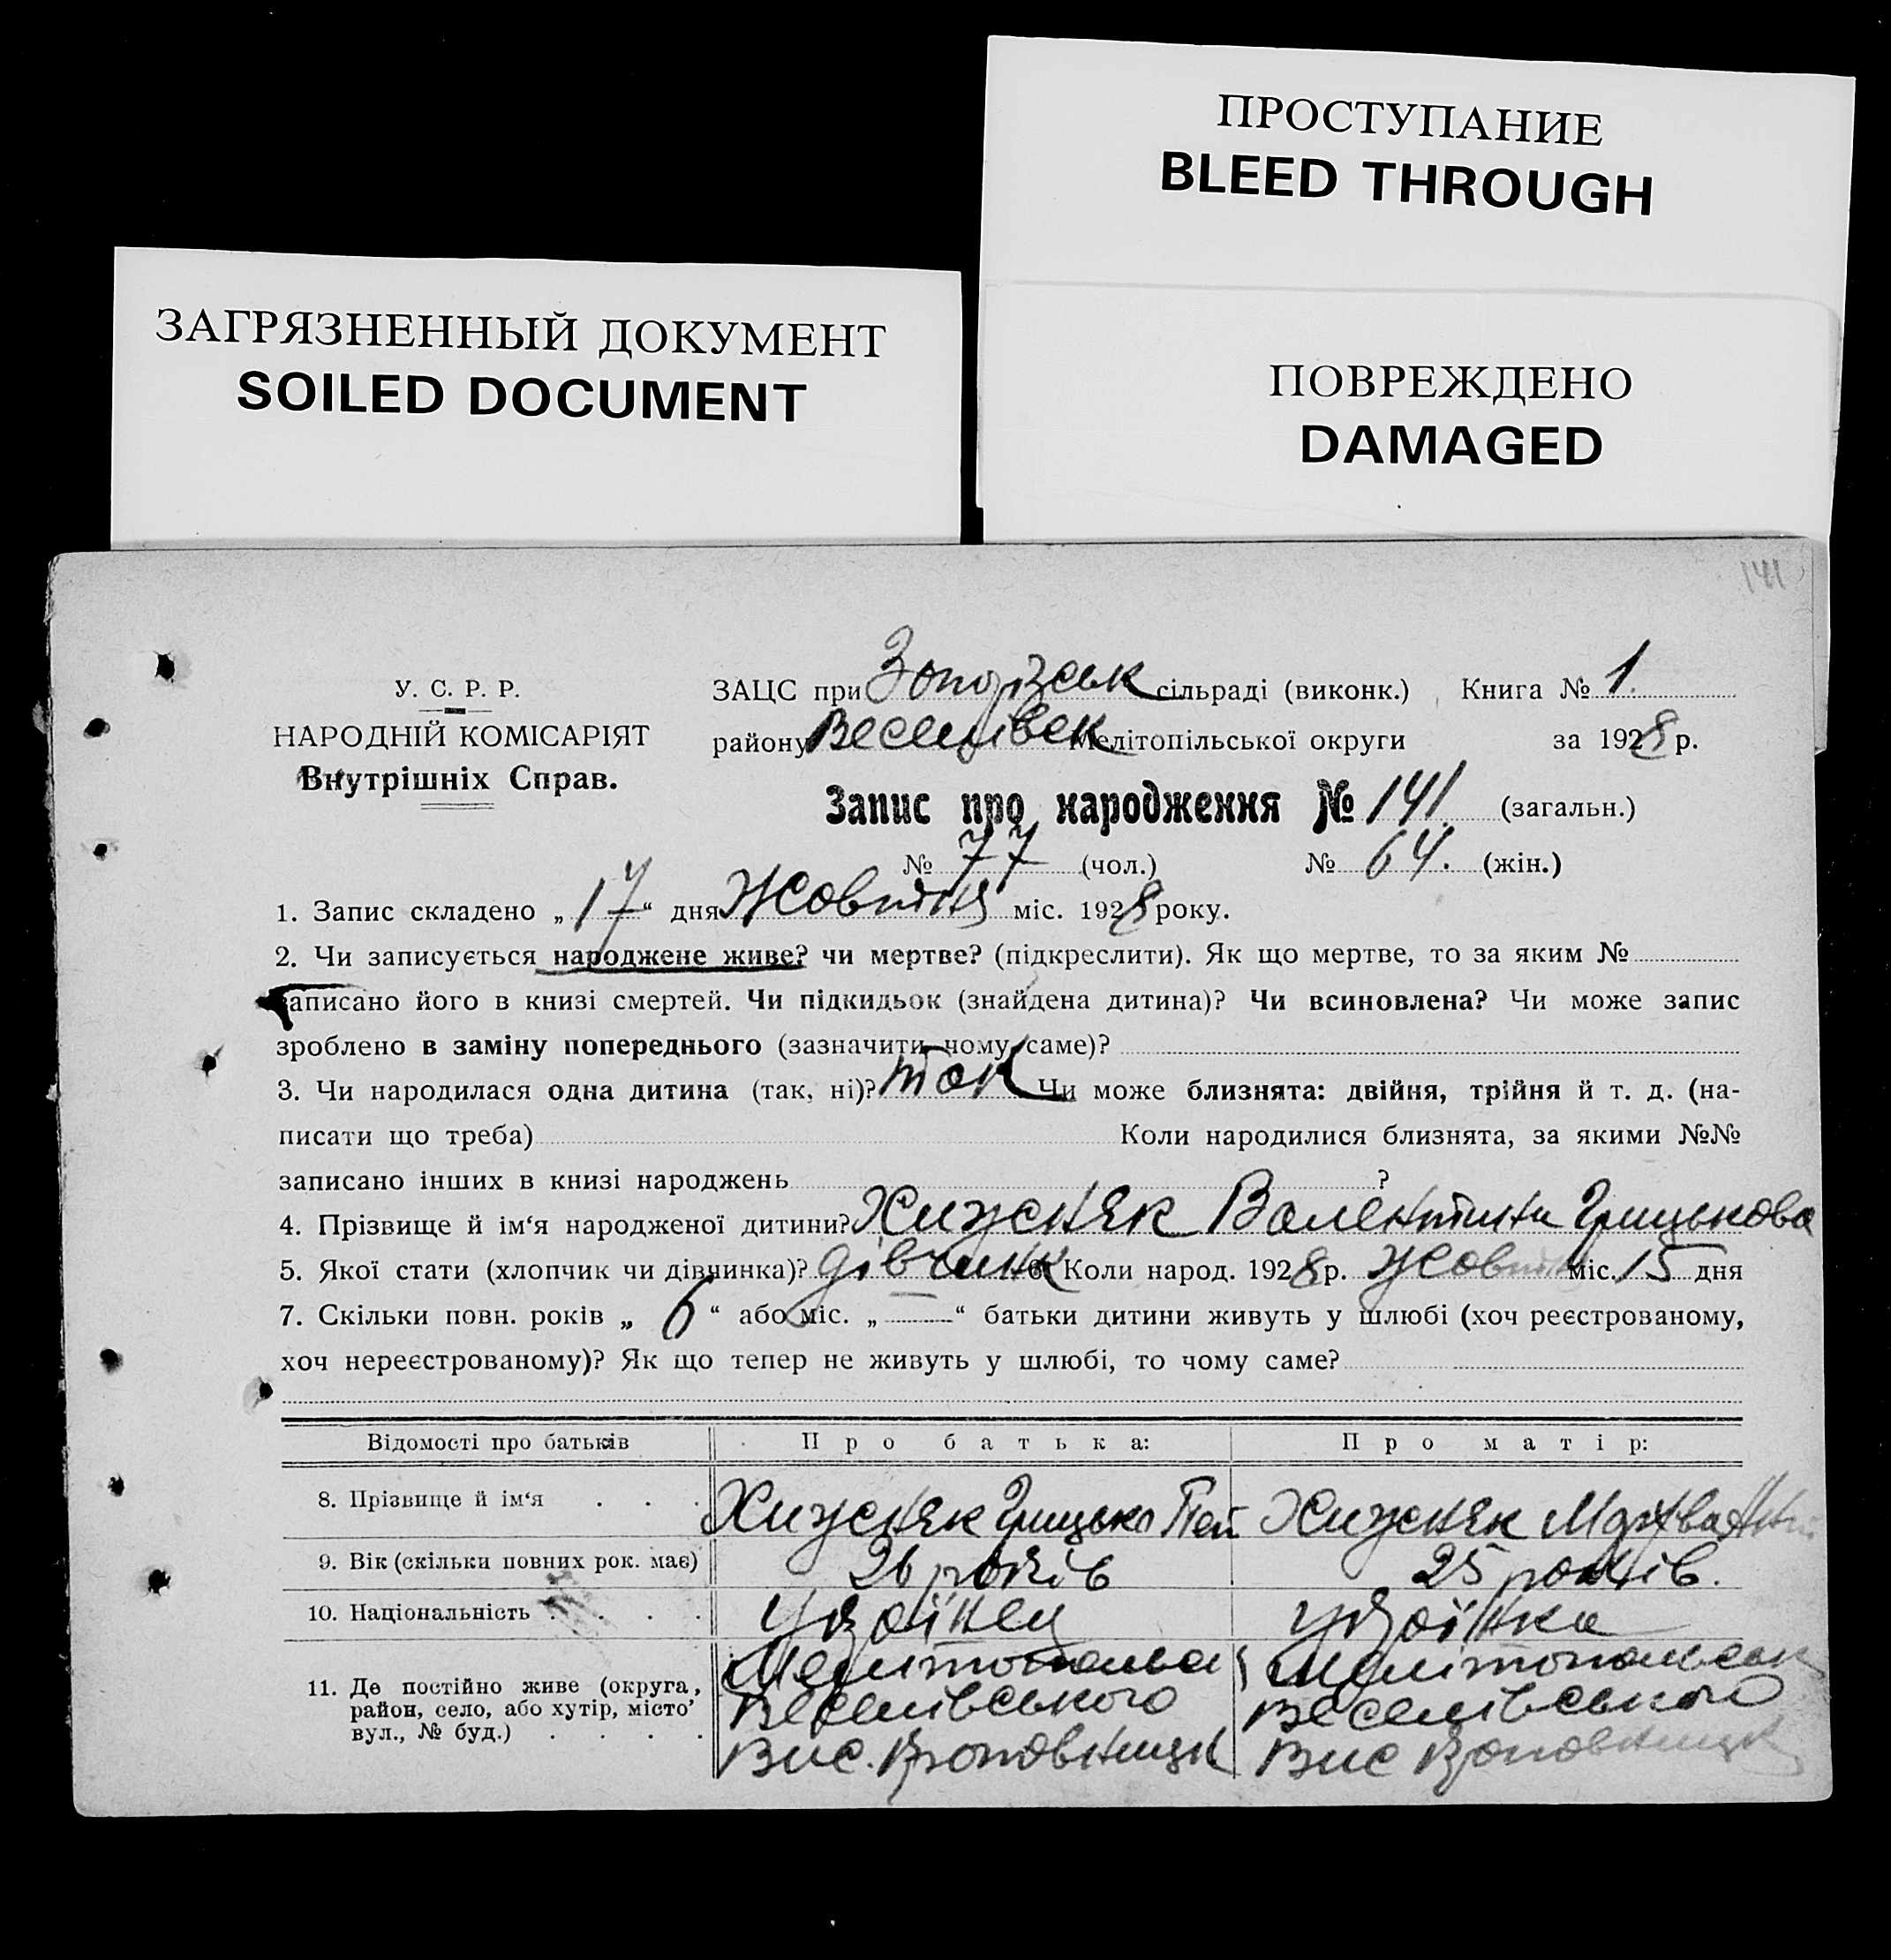 ПРОСТУПАНИЕ
BLEED THROUGH
ЗАГРЯЗНЕННЫЙ ДОКУМЕНТ
SOILED DOCUMENT
ПОВРЕЖДЕНО
DAMAGED
141
У. С. Р. Р.
НАРОДНІЙ КОМІСАРІЯТ
Внутрішніх Справ.
ЗАЦС при сільраді (виконк.) Книга № 1.
району Веселівск Мелітопільської округи за 1928 р.
Запис про народження № 141. (загальн.)
№ 77 (чол.) № 64. (жін.)
1. Запис складено „17“ дня Жовтня міс. 1928 року.
2. Чи записується народжене живе? чи мертве? (підкреслити). Як що мертве, то за яким №
записано його в книзі смертей. Чи підкидьок (знайдена дитина)? Чи всиновлена? Чи може запис
зроблено в заміну попереднього (зазначити чому саме)?
3. Чи народилася одна дитина (так, ні)? так Чи може близнята: двійня, трійня й т. д. (на-
писати що треба) Коли народилися близнята, за якими №№
записано інших в книзі народжень ?
4. Прізвище й ім‘я народженої дитини? Хижняк Валентина Грицькова
5. Якої стати (хлопчик чи дівчинка)? дівчинка 6. Коли народ. 1928 р. Жовтня міс. 15 дня
7. Скільки повн. років „ 6 “ або міс. „ — “ батьки дитини живуть у шлюбі (хоч реєстрованому,
хоч нереєстрованому)? Як що тепер не живуть у шлюбі, то чому саме?
Відомості про батьків Про батька: Про матір:
8. Прізвище й ім‘я . . . Хижняк Грицько Хижняк
9. Вік (скільки повних рок. має) 26 років 25 років.
10. Національність . . . . Українец Українка
11. Де постійно живе (округа,
район, село, або хутір, місто’
вул., № буд.) . . . .
Веселівського Веселівського
Вис. Вис